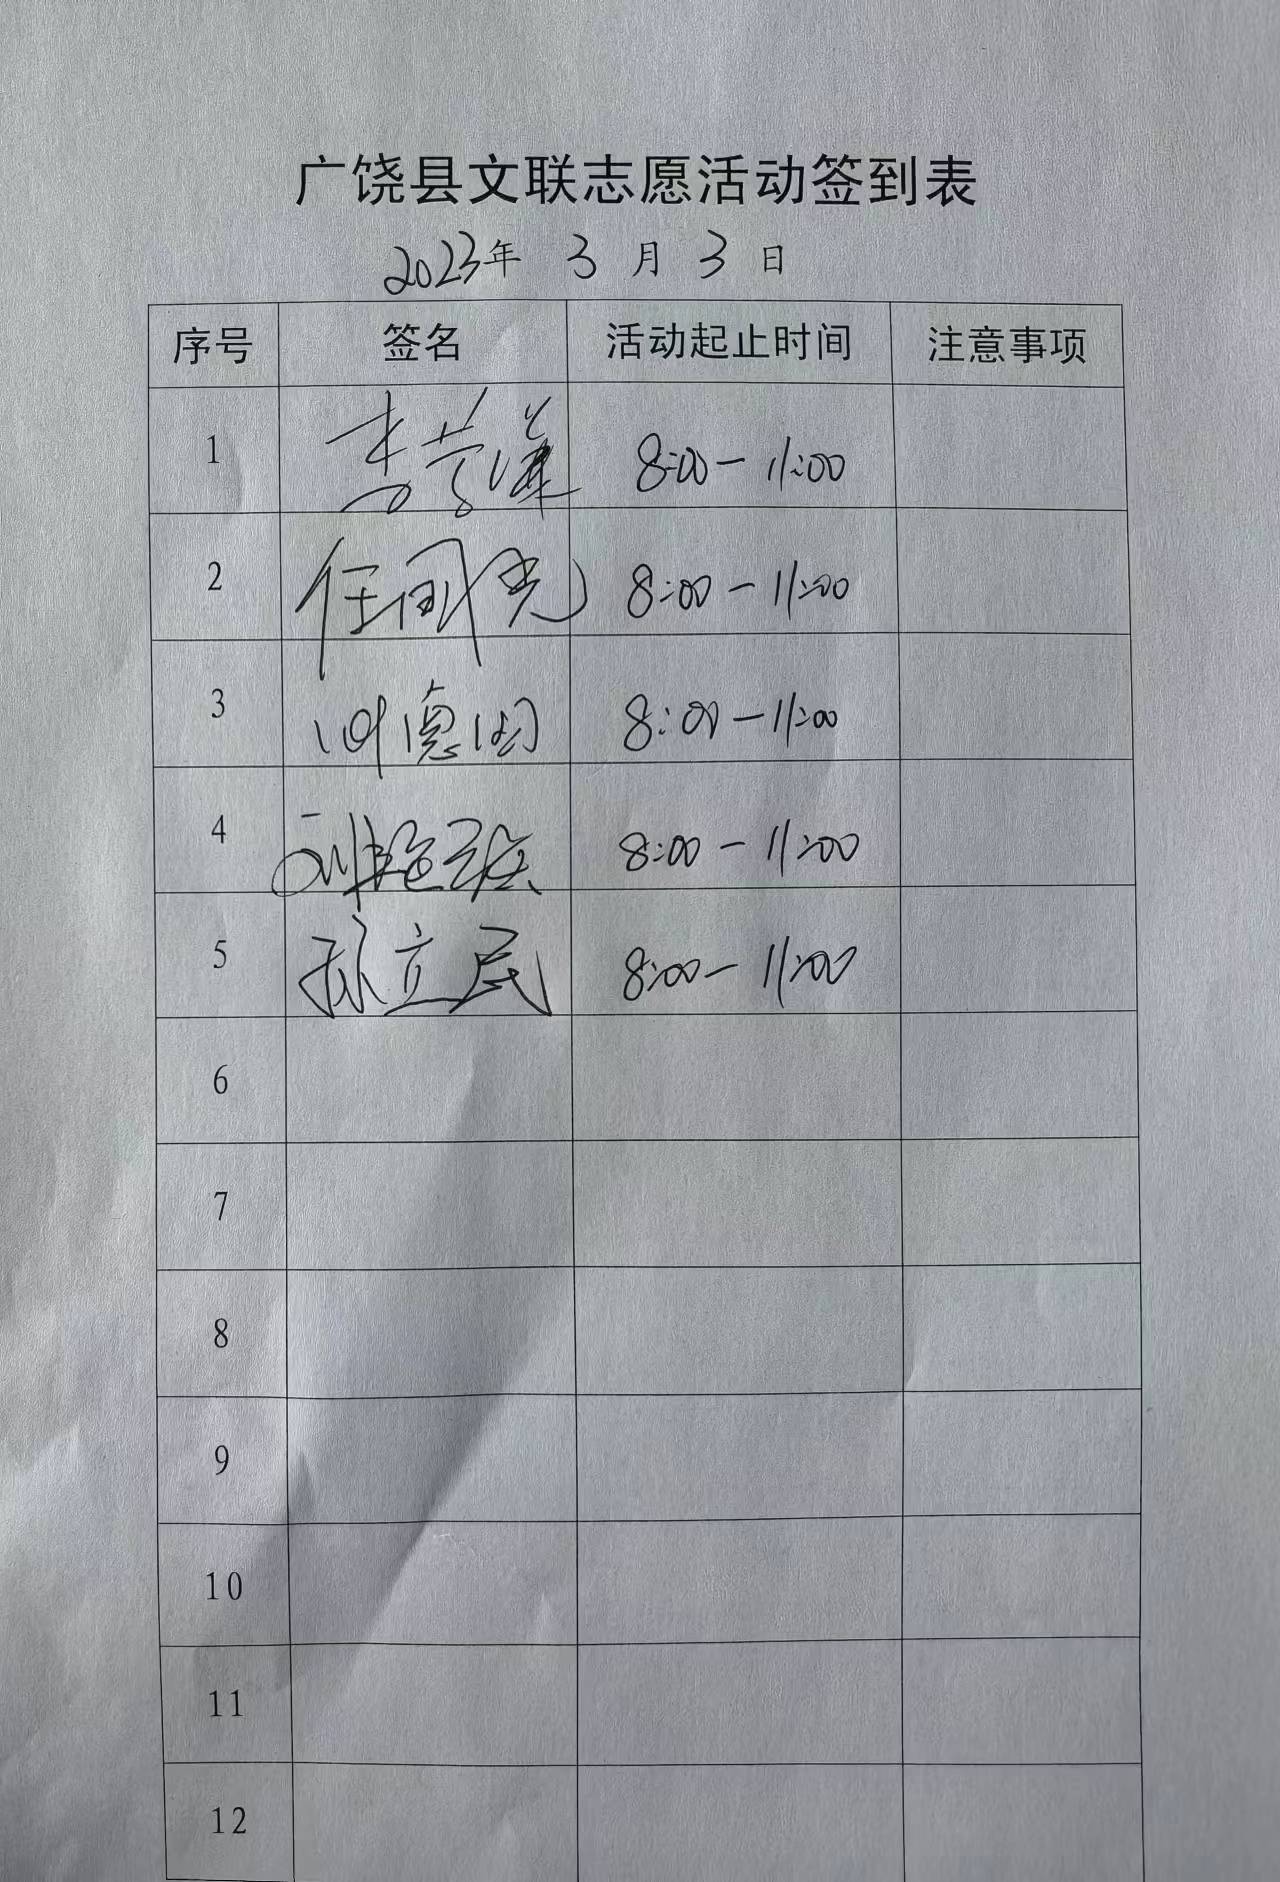 广饶县文联志愿活动签到表
2023年 3 月 3 日
序号 签名 活动起止时间 注意事项
1 李 8:00-11:00
2 任国光 8:00-11:00
3 8:00-11:00
4 8:00-11:00
5 孙立民 8:00-11:00
6
7
8
9
10
11
12